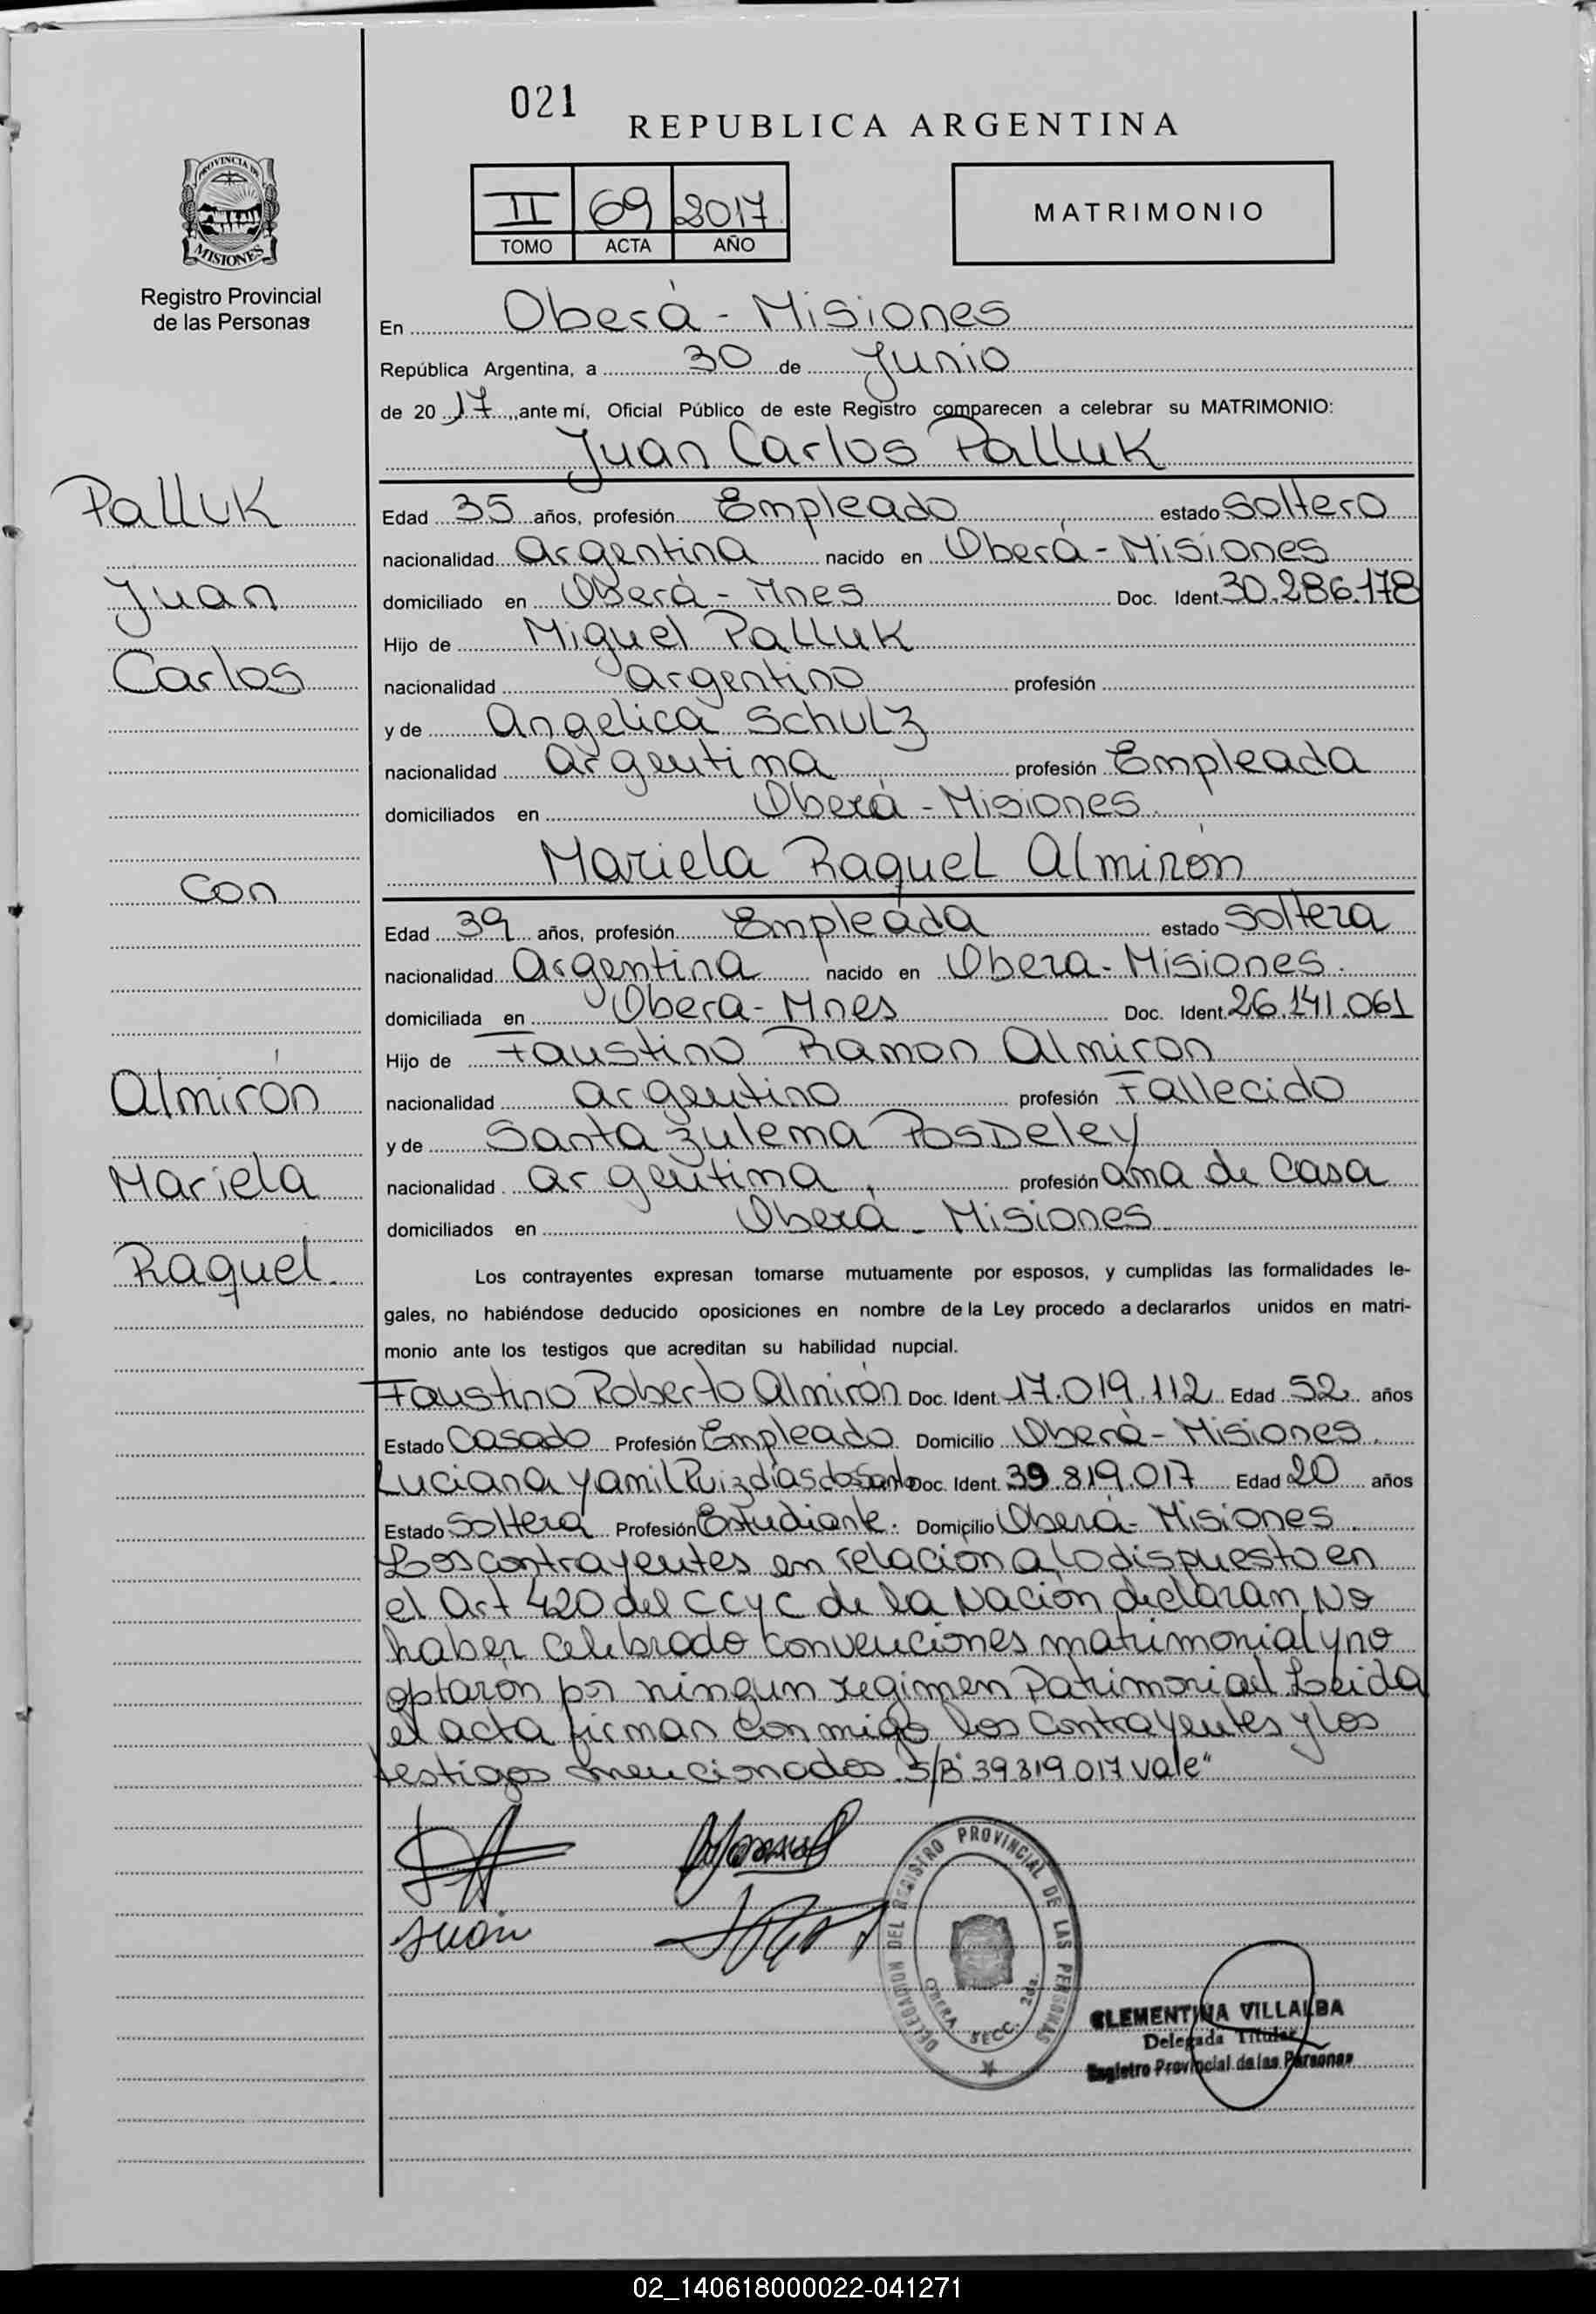 021
REPUBLICA ARGENTINA
PROVINCIA DE
MISIONES
Registro Provincial
de las Personas
II 69 2017
TOMO ACTA AÑO
MATRIMONIO
En Oberá - Misiones
República Argentina, a 30 de Junio
de 20 17, ante mí, Oficial Público de este Registro comparecen a celebrar su MATRIMONIO:
Juan Carlos Palluk
Palluk
Juan
Carlos
con
Almirón
Mariela
Raquel.
Edad 35 años, profesión Empleado estado Soltero
nacionalidad Argentina nacido en Oberá - Misiones
domiciliado en Oberá - Mnes Doc. Ident. 30.286.178
Hijo de Miguel Palluk
nacionalidad argentino profesión
y de Angelica Schulz
nacionalidad argentina profesión Empleada
domiciliados en Oberá - Misiones.
Mariela Raquel Almirón
Edad 39 años, profesión Empleada estado Soltera
nacionalidad Argentina nacido en Obera - Misiones.
domiciliada en Obera - Mnes Doc. Ident. 26.141.061
Hijo de Faustino Ramon Almiron
nacionalidad argentino profesión Fallecido
y de Santa Zulema PosDeley
nacionalidad argentina, profesión ama de Casa
domiciliados en Oberá - Misiones
Los contrayentes expresan tomarse mutuamente por esposos, y cumplidas las formalidades le-
gales, no habiéndose deducido oposiciones en nombre de la Ley procedo a declararlos unidos en matri-
monio ante los testigos que acreditan su habilidad nupcial.
Faustino Roberto Almirón Doc. Ident. 17.019.112 Edad 52 años
Estado Casado Profesión Empleado Domicilio Oberá - Misiones.
Luciana Yamil Ruizdías Doc. Ident. 39.819.017 Edad 20 años
Estado Soltera Profesión Estudiante. Domicilio Oberá - Misiones.
Los contrayentes en relación a lo dispuesto en
el Art 420 del CCyC de la Nación declaran No
haber celebrado convenciones matrimonial y no
optaron por ningun regimen Patrimonial. Leida
el acta firman conmigo los Contrayentes y los
testigos mencionados. S/B "39 819.017 Vale"
Juan
DELEGACION DEL REGISTRO PROVINCIAL DE LAS PERSONAS
OBERA SECC. 2da.
CLEMENTINA VILLALBA
Delegada Titular
Registro Provincial de las Personas
02_140618000022-041271